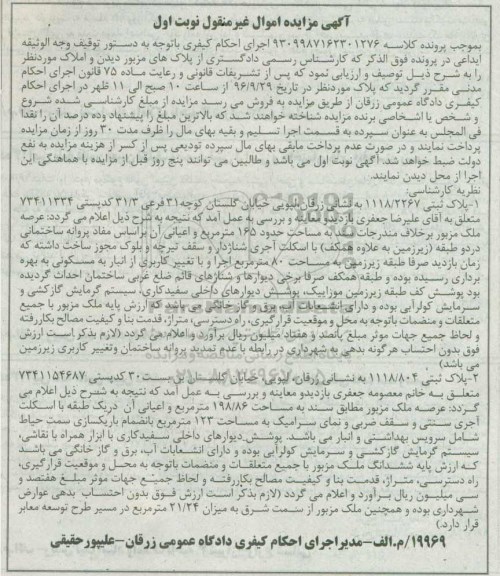 آگهی مزایده اموال غیرمنقول نوبت اول
بموجب پرونده کلاسه ۹۳۰۹۹۸۷۱۶۲۳۰۱۲۷۶ اجرای احکام کیفری باتوجه به دستور توقیف وجه الوثیقه
ایداعی در پرونده فوق الذکر که کارشناس رسمی دادگستری از پلاک های مزبور دیدن و املاک موردنظر
را به شرح ذیل توصیف و ارزیابی نمود که پس از تشریفات قانونی و رعایت ماده ۷۵ قانون اجرای احکام
مدنی مقرر گردید که پلاک موردنظر در تاریخ ۹۶/۹/۲۹ از ساعت ۱۰ صبح الی ۱۱ ظهر در اجرای احکام
کیفری دادگاه عمومی زرقان از طریق مزایده به فروش می رسد مزایده از مبلغ کارشناسی شده شروع
و شخص یا اشخاصی برنده مزایده شناخته خواهند شد که بالاترین مبلغ را پیشنهاد وده درصد آن را نقدا
فی المجلس به عنوان سپرده به قسمت اجرا تسلیم و بقیه بهای مال را ظرف مدت ۳۰ روز از زمان مزایده
پرداخت نمایند و در صورت عدم پرداخت مابقی بهای مال سپرده تودیعی پس از کسر از هزینه مزایده به نفع
دولت ضبط خواهد شد. آگهی نوبت اول می باشد و طالبین می توانند پنج روز قبل از مزایده با هماهنگی این
اجرا از محل دیدن نمایند.
نظریه کارشناسی:
۱-پلاک ثبتی ۱۱۱۸/۲۲۶۷ به نشانی زرقان لپویی خیابان گلستان کوچه۳۱ فرعی ۳۱/۳ کدپستی ۷۳۴۱۱۳۳۴
متعلق به آقای علیرضا جعفری بازدیدو معاینه و بررسی به عمل آمد که نتیجه به شرح ذیل اعلام می گردد: عرصه
ملک مزبور برخلاف مندرجات سند به مساحت حدود ۱۶۵ مترمربع و اعیانی آن براساس مفاد پروانه ساختمانی
دردو طبقه (زیرزمین به علاوه همکف) با اسکلت آجری شناژدار و سقف تیرچه و بلوک مجوز ساخت داشته که
زمان بازدید صرفا طبقه زیرزمین به مساحت ۸۰ مترمربع اجرا و با تغییر کاربری از انبار به مسکونی به بهره
برداری رسیده بوده و طبقه همکف صرفا برخی دیوارها و شناژهای قائم ضلع غربی ساختمان احداث گردیده
بود پوشش کف طبقه زیرزمین موزاییک، پوشش دیوارهای داخلی سفیدکاری، سیستم گرمایش گازکشی و
سرمایش کولرآبی بوده و دارای انشعابات آب، برق و گاز خانگی می باشد که ارزش پایه ملک مزبور با جمیع
متعلقات و منضمات باتوجه به محل و موقعیت قرارگیری، راه دسترسی، متراژ، قدمت بنا و کیفیت مصالح بکاررفته
و لحاظ جمیع جهات موثر مبلغ پانصد و هفتاد میلیون ریال برآورد و اعلام می گردد (لازم بذکر است ارزش
فوق بدون احتساب هرگونه بدهی به شهرداری در رابطه با عدم تمدید پروانه ساختمان وتغییر کاربری زیرزمین
می باشد)
۲-پلاک ثبتی ۱۱۱۸/۸۰۴ به نشانی زرقان، لپویی، خیابان گلستان بن بست۳۰ کدپستی ۷۳۴۱۱۵۴۶۸۷
متعلق به خانم معصومه جعفری بازدیدو معاینه و بررسی به عمل آمد که نتیجه به شرح ذیل اعلام می
گردد: عرصه ملک مزبور مطابق سند به مساحت ۱۹۸/۸۶ مترمربع و اعیانی آن دریک طبقه با اسکلت
آجری سنتی و سقف ضربی و نمای سرامیک به مساحت ۱۲۳ مترمربع بانضمام باربکسازی سمت حیاط
شامل سرویس بهداشتی و انبار می باشد. پوشش دیوارهای داخلی سفیدکاری با ابزار همراه با نقاشی،
سیستم گرمایش گازکشی و سرمایش کولرآبی بوده و دارای انشعابات آب، برق و گاز خانگی می باشد
که ارزش پایه ششدانگ ملک مزبور با جمیع متعلقات و منضمات باتوجه به محل و موقعیت قرارگیری،
راه دسترسی، متراژ، قدمت بنا و کیفیت مصالح بکاررفته و لحاظ جمیع جهات موثر مبلغ هفتصد و
سی میلیون ریال برآورد و اعلام می گردد (لازم بذکر است ارزش فوق بدون احتساب بدهی عوارض
شهرداری بوده و همچنین ملک مزبور از سمت شرق به میزان ۲۱/۲۴ مترمربع در مسیر طرح توسعه معابر
قرار دارد.)
۱۹۹۶۹/م.الف-مدیراجرای احکام کیفری دادگاه عمومی زرقان-علیپورحقیقی